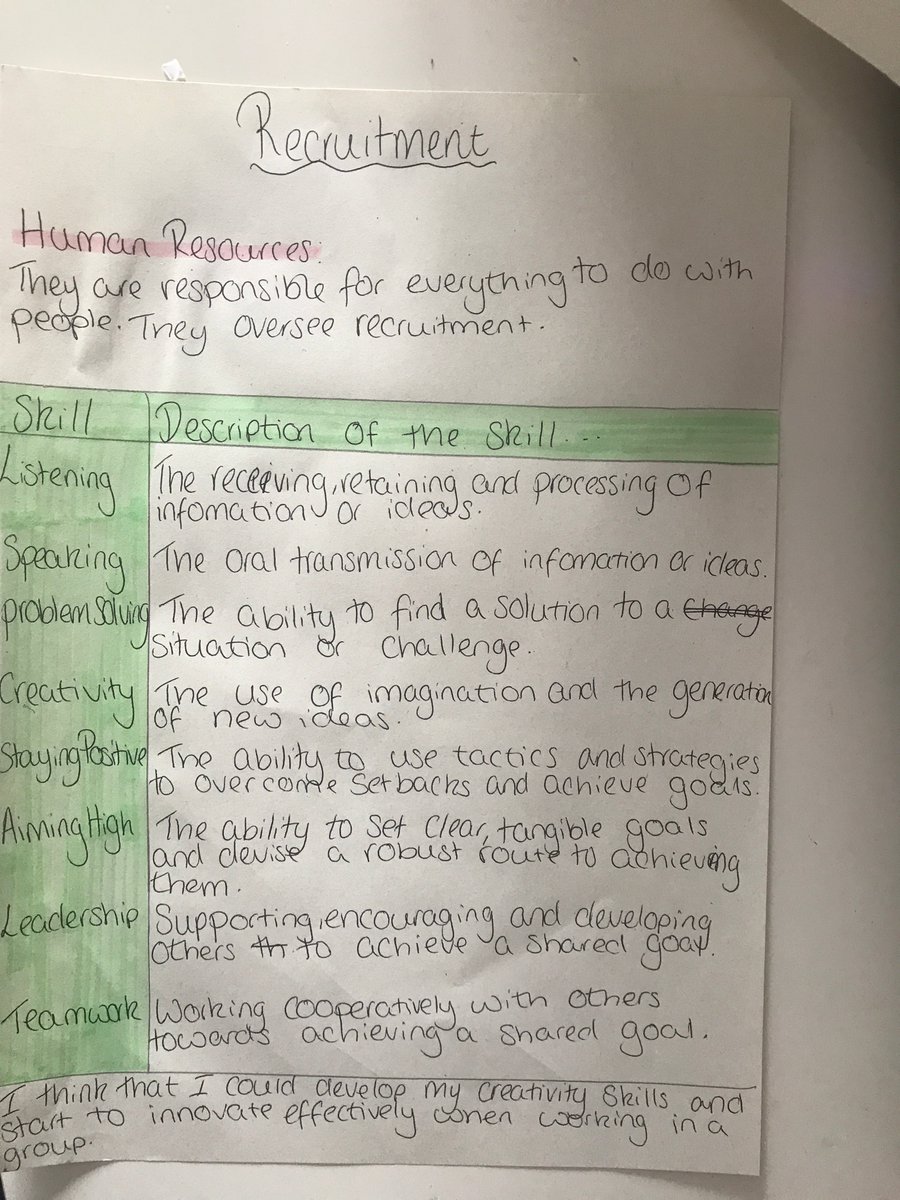 Recruitment
Human Resources:
They are responsible for everything to do with
people. They oversee recruitment.
Skill Description of the skill...
Listening The receeving, retaining and processing of
infomation or ideas.
Speaking The oral transmission of infomation or ideas.
problem solving The ability to find a solution to a change
situation or challenge.
Creativity The use of imagination and the generation
of new ideas.
Staying Positive The ability to use tactics and strategies
to overcome setbacks and achieve goals.
Aiming High The ability to set clear, tangible goals
and devise a robust route to achieving
them.
Leadership Supporting, encouraging and developing
others th to achieve a shared goal.
Teamwork Working cooperatively with others
towards achieving a shared goal.
I think that I could develop my creativity skills and
start to innovate effectively when working in a
group.